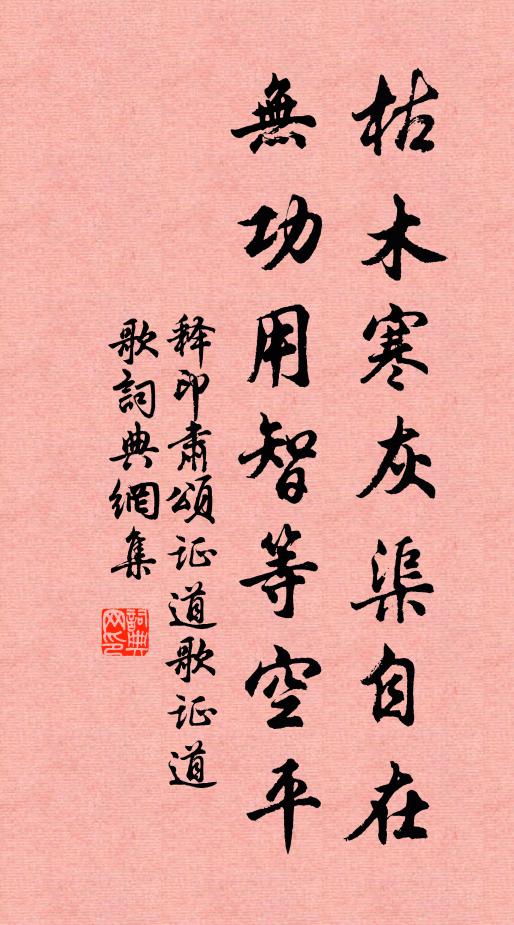 枯木寒灰渠自在
無功用智等空平
释印肃頌证道歌证道
歌詞典網集
詞典网印